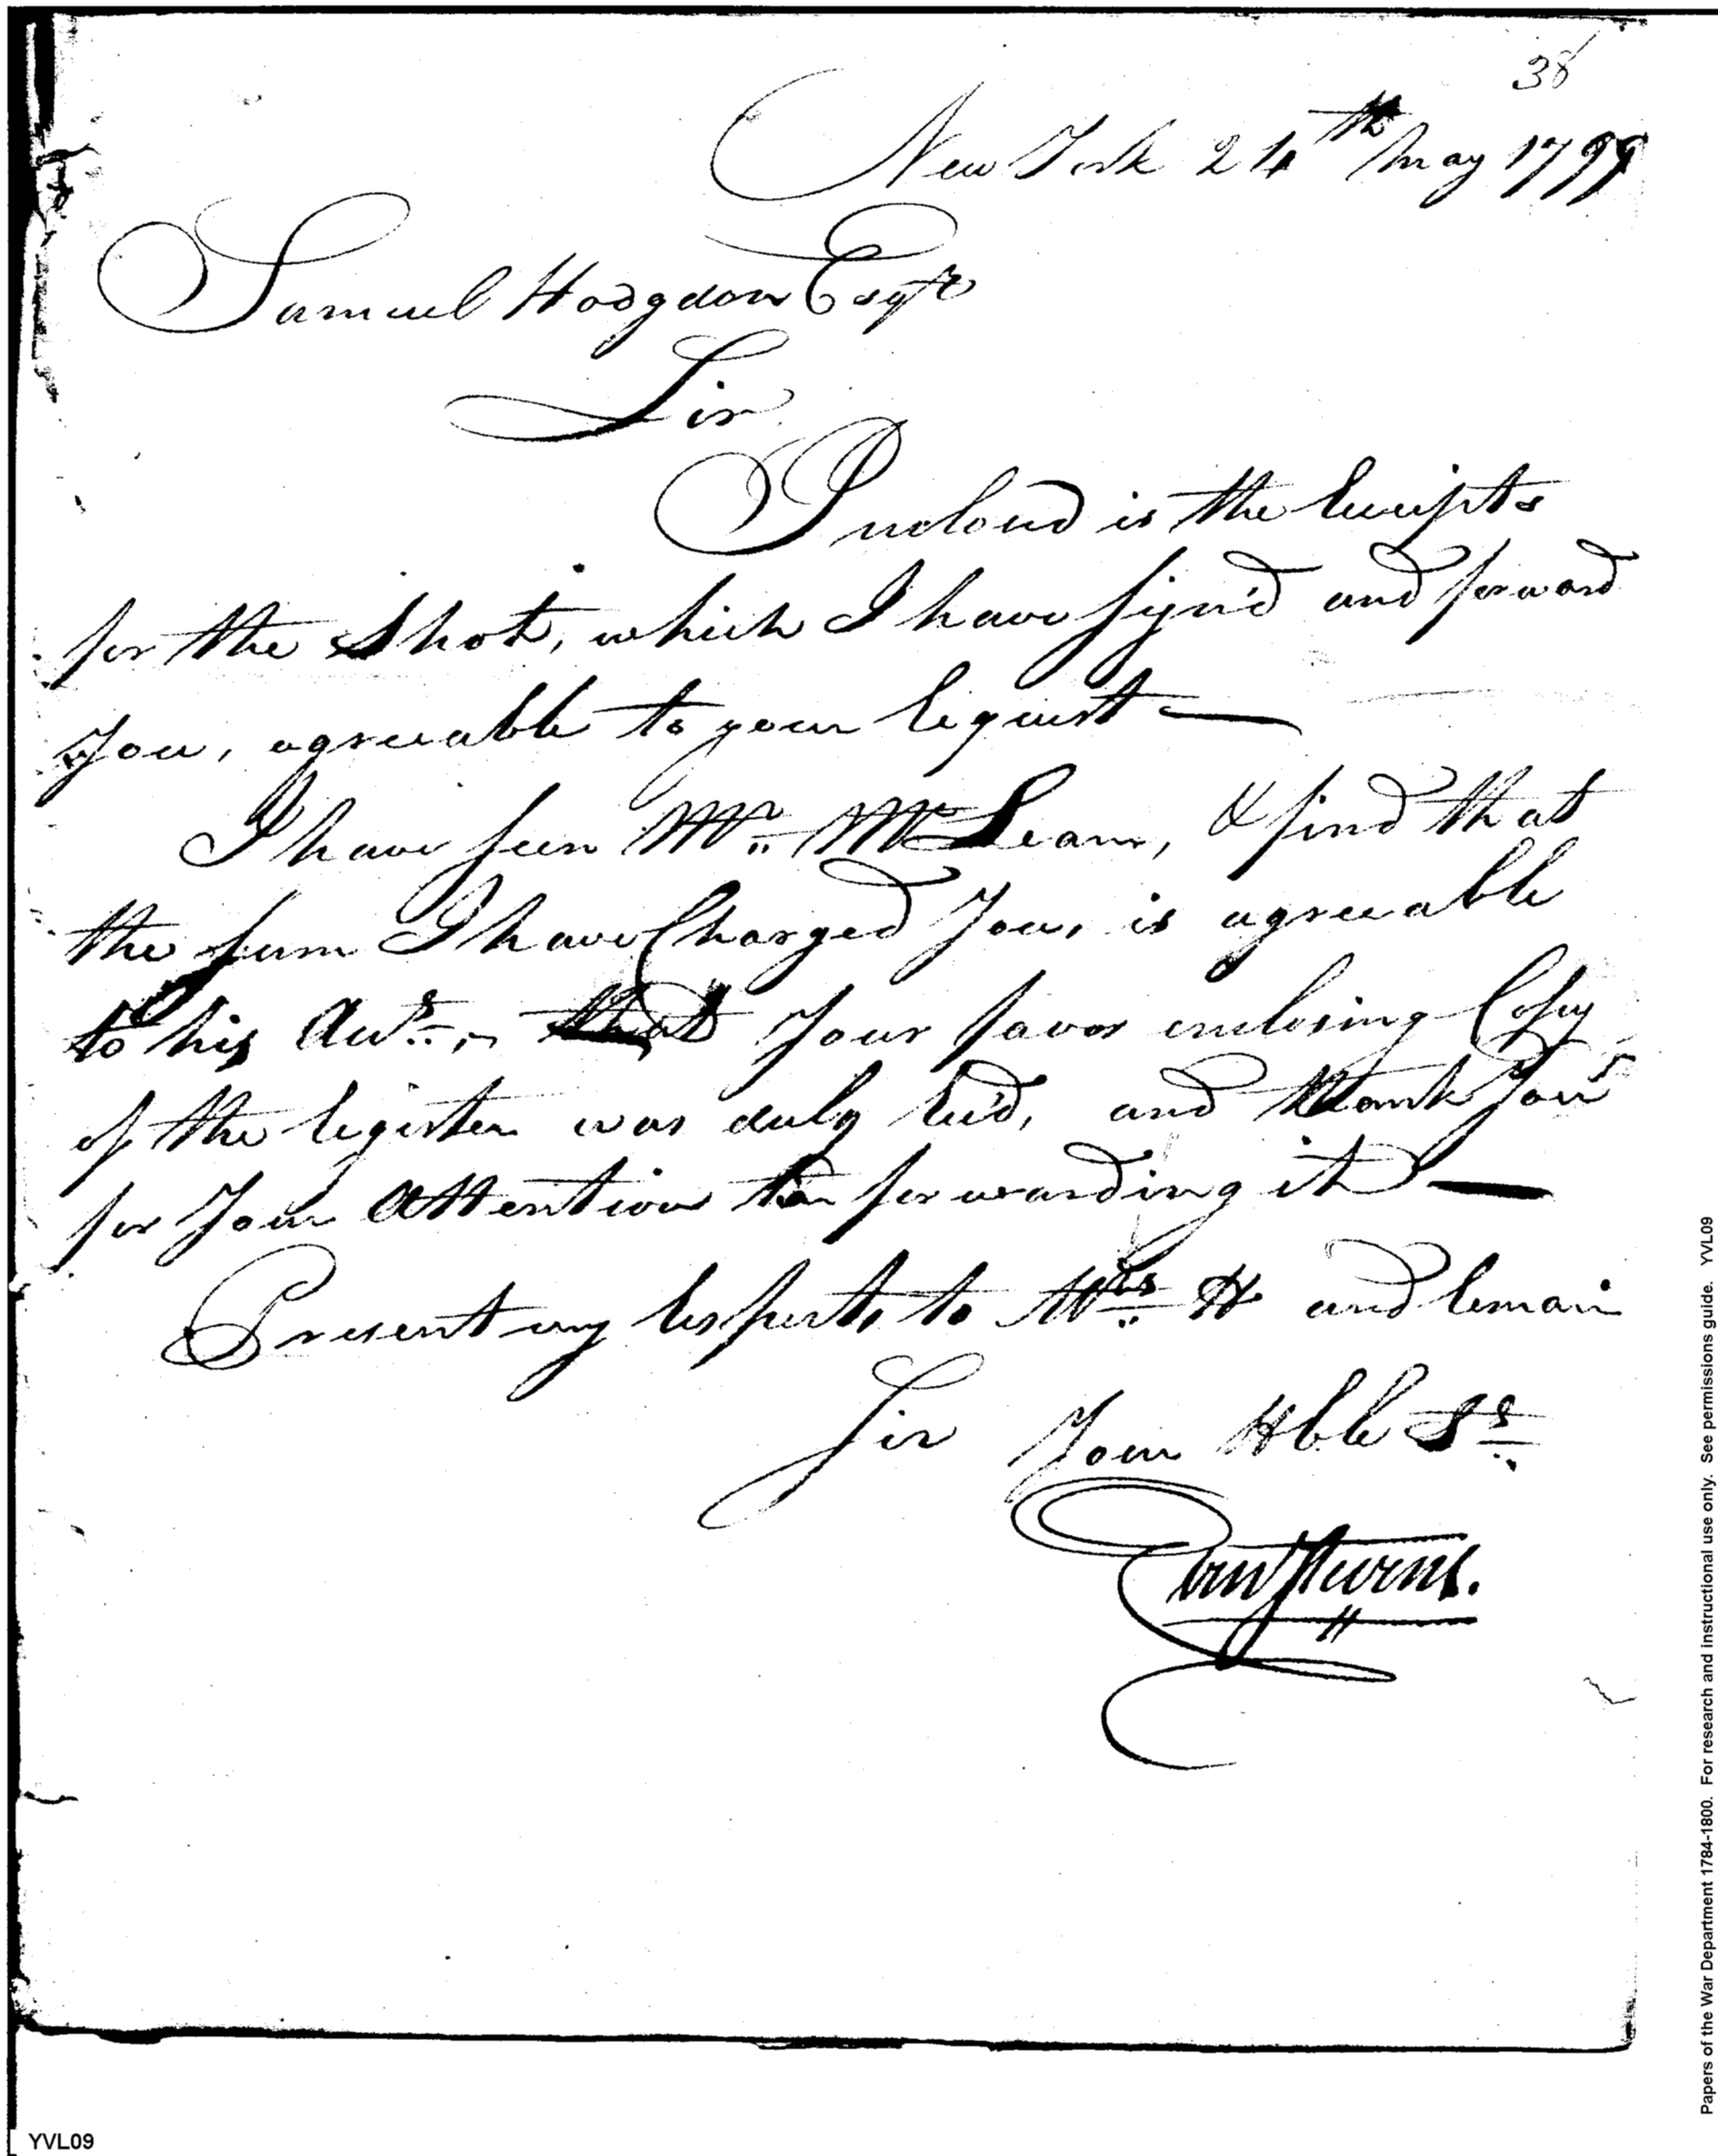 38
New York 24th May 1799
Samuel Hodgdon Esqr
Sir
Inclosed is the Receipts
for the Shot, which I have sign'd and forward
You, agreeable to your Request —
I have seen Mr. McLean, & find that
the sum I have Charged You, is agreeable
to his Acts., Your favor enclosing Copy
of the register was duly Rec'd, and thank You
for Your Attention in forwarding it —
Present my Respects to Mrs. H and Remain
Sir Your Hble St
Eben Stevens.
YVL09
Papers of the War Department 1784-1800. For research and instructional use only. See permissions guide. YVL09